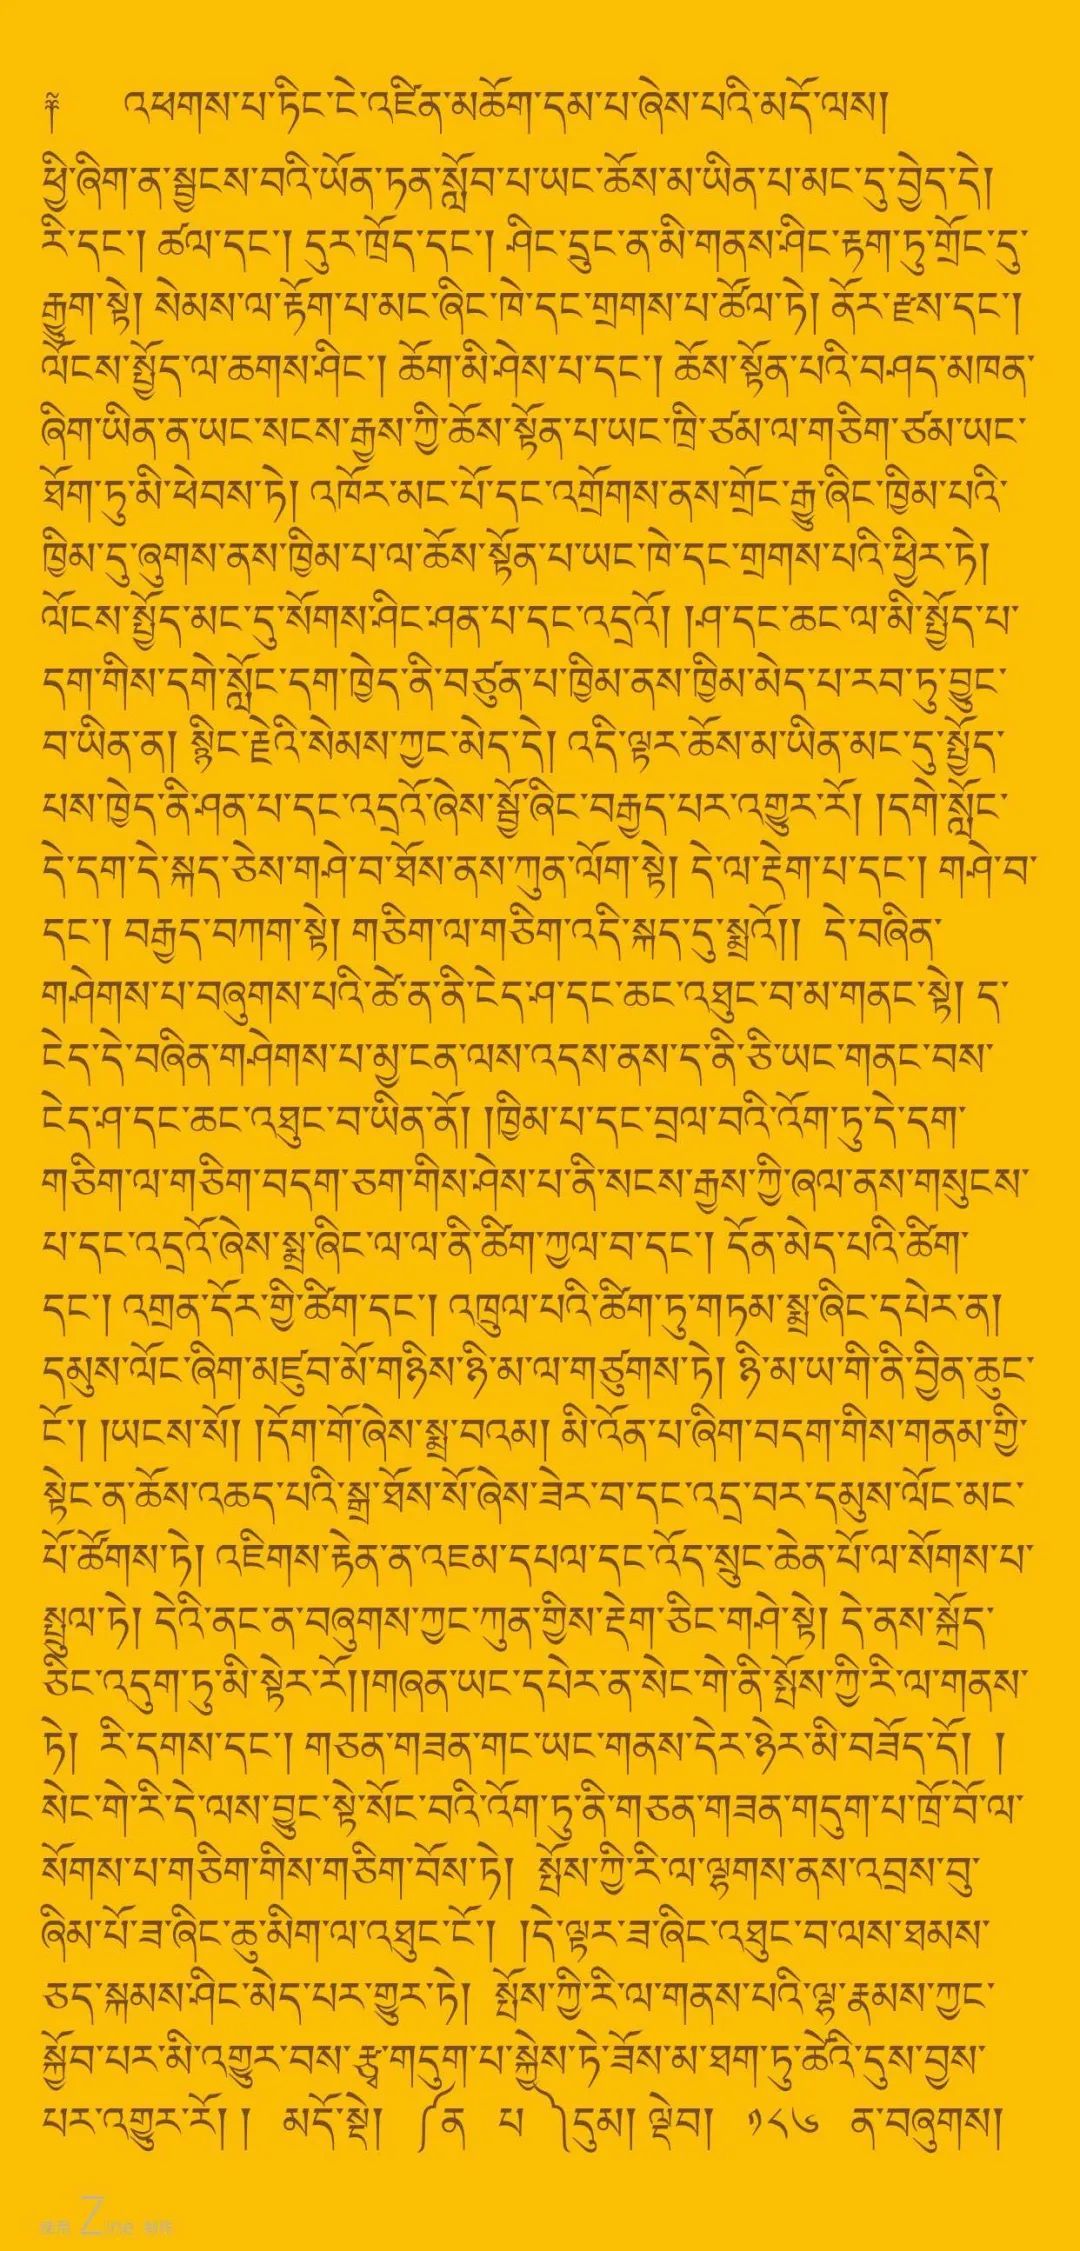 ༈ འཕགས་པ་ཏིང་ངེ་འཛིན་མཆོག་དམ་པ་ཞེས་པའི་མདོ་ལས།
ཕྱི་ཞིག་ན་སྦྱངས་བའི་ཡོན་ཏན་སློབ་པ་ཡང་ཆོས་མ་ཡིན་པ་མང་དུ་བྱེད་དེ།
རི་དང་། ཚལ་དང་། དུར་ཁྲོད་དང་། ཤིང་དྲུང་ན་མི་གནས་ཤིང་རྟག་ཏུ་གྲོང་དུ་
རྒྱུག་སྟེ། སེམས་ལ་རྟོག་པ་མང་ཞིང་ཁེ་དང་གྲགས་པ་ཚོལ་ཏེ། ནོར་རྫས་དང་།
ལོངས་སྤྱོད་ལ་ཆགས་ཤིང་། ཆོག་མི་ཤེས་པ་དང་། ཆོས་སྟོན་པའི་བཤད་མཁན་
ཞིག་ཡིན་ན་ཡང་སངས་རྒྱས་ཀྱི་ཆོས་སྟོན་པ་ཡང་ཁྲི་ཙམ་ལ་གཅིག་ཙམ་ཡང་
ཐོག་ཏུ་མི་ཕེབས་ཏེ། འཁོར་མང་པོ་དང་འགྲོགས་ནས་གྲོང་རྒྱུ་ཞིང་ཁྱིམ་པའི་
ཁྱིམ་དུ་ཞུགས་ནས་ཁྱིམ་པ་ལ་ཆོས་སྟོན་པ་ཡང་ཁེ་དང་གྲགས་པའི་ཕྱིར་ཏེ།
ལོངས་སྤྱོད་མང་དུ་སོགས་ཤིང་ཤན་པ་དང་འདྲའོ། །ཤ་དང་ཆང་ལ་མི་སྤྱོད་པ་
དག་གིས་དགེ་སློང་དག་ཁྱེད་ནི་བཙུན་པ་ཁྱིམ་ནས་ཁྱིམ་མེད་པ་རབ་ཏུ་བྱུང་
བ་ཡིན་ན། སྙིང་རྗེའི་སེམས་ཀྱང་མེད་དེ། འདི་ལྟར་ཆོས་མ་ཡིན་མང་དུ་སྤྱོད་
པས་ཁྱེད་ནི་ཤན་པ་དང་འདྲའོ་ཞེས་སྨྲོ་ཞིང་བརྒྱད་པར་འགྱུར་རོ། །དགེ་སློང་
དེ་དག་དེ་སྐད་ཅེས་གཤེ་བ་ཐོས་ནས་ཀུན་ལོག་སྟེ། དེ་ལ་རྡེག་པ་དང་། གཤེ་བ་
དང་། བརྒྱད་བཀག་སྟེ། གཅིག་ལ་གཅིག་འདི་སྐད་དུ་སྨྲའོ།། དེ་བཞིན་
གཤེགས་པ་བཞུགས་པའི་ཚེ་ན་ནི་ངེད་ཤ་དང་ཆང་འཐུང་བ་མ་གནང་སྟེ། ད་
ངེད་དེ་བཞིན་གཤེགས་པ་མྱ་ངན་ལས་འདས་ནས་ད་ནི་ཅི་ཡང་གནང་བས་
ངེད་ཤ་དང་ཆང་འཐུང་བ་ཡིན་ནོ། །ཁྱིམ་པ་དང་བྲལ་བའི་འོག་ཏུ་དེ་དག་
གཅིག་ལ་གཅིག་བདག་ཅག་གིས་ཤེས་པ་ནི་སངས་རྒྱས་ཀྱི་ཞལ་ནས་གསུངས་
པ་དང་འདྲའོ་ཞེས་སྨྲ་ཞིང་ལ་ལ་ནི་ཚིག་ཀྱལ་བ་དང་། དོན་མེད་པའི་ཚིག་
དང་། འགྲན་དོར་གྱི་ཚིག་དང་། འཁྲུལ་པའི་ཚིག་ཏུ་གཏམ་སྨྲ་ཞིང་དཔེར་ན།
དམུས་ལོང་ཞིག་མཛུབ་མོ་གཉིས་ཉི་མ་ལ་གཙུགས་ཏེ། ཉི་མ་ཡ་གི་ནི་བྱིན་ཆུང་
ངོ་། །ཡངས་སོ། །དོག་གོ་ཞེས་སྨྲ་བའམ། མི་འོན་པ་ཞིག་བདག་གིས་གནམ་གྱི་
སྟེང་ན་ཆོས་འཆད་པའི་སྒྲ་ཐོས་སོ་ཞེས་ཟེར་བ་དང་འདྲ་བར་དམུས་ལོང་མང་
པོ་ཚོགས་ཏེ། འཇིགས་རྟེན་ན་འཇམ་དཔལ་དང་འོད་སྲུང་ཆེན་པོ་ལ་སོགས་པ་
སྤྲུལ་ཏེ། དེའི་ནང་ན་བཞུགས་ཀྱང་ཀུན་གྱིས་རྡེག་ཅིང་གཤེ་སྟེ། དེ་ནས་སྐྲོད་
ཅིང་འདུག་ཏུ་མི་སྟེར་རོ།།གཞན་ཡང་དཔེར་ན་སེང་གེ་ནི་སྤོས་ཀྱི་རི་ལ་གནས་
ཏེ། རི་དགས་དང་། གཅན་གཟན་གང་ཡང་གནས་དེར་ཉེར་མི་བཟོད་དོ། །
སེང་གེ་རི་དེ་ལས་བྱུང་སྟེ་སོང་བའི་འོག་ཏུ་ནི་གཅན་གཟན་གདུག་པ་ཁྲོ་བོ་ལ་
སོགས་པ་གཅིག་གིས་གཅིག་བོས་ཏེ། སྤོས་ཀྱི་རི་ལ་ལྷགས་ནས་འབྲས་བུ་
ཞིམ་པོ་ཟ་ཞིང་ཆུ་མིག་ལ་འཐུང་ངོ་། །དེ་ལྟར་ཟ་ཞིང་འཐུང་བ་ལས་ཐམས་
ཅད་སྐམས་ཤིང་མེད་པར་གྱུར་ཏེ། སྤོས་ཀྱི་རི་ལ་གནས་པའི་ལྷ་རྣམས་ཀྱང་
སྐྱོབ་པར་མི་འགྱུར་བས་རྩྭ་གདུག་པ་སྐྱེས་ཏེ་ཟོས་མ་ཐག་ཏུ་ཚེའི་དུས་བྱས་
པར་འགྱུར་རོ། ། མདོ་སྡེ། ༼ན པ ༽དུམ། ལྡེབ། ༡༨༦ ན་བཞུགས།
使用 Zine 制作